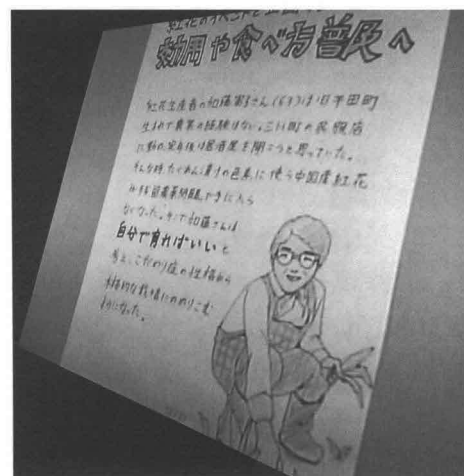 紅花のイベントを企画
効用や食べ方普及へ
紅花生産者の加藤実さん(63)は旧平田町
生まれで農業の経験はない。三川町の呉服店
に勤め、定年後は居酒屋を開こうと思っていた。
そんな時、たくあん漬けの色素に使う中国産紅花
が残留農薬問題で手に入ら
なくなった。そこで加藤さんは
自分で育ればいいと
考え、こだわり症の性格から
本格的な栽培にのめりこむ
ようになった。